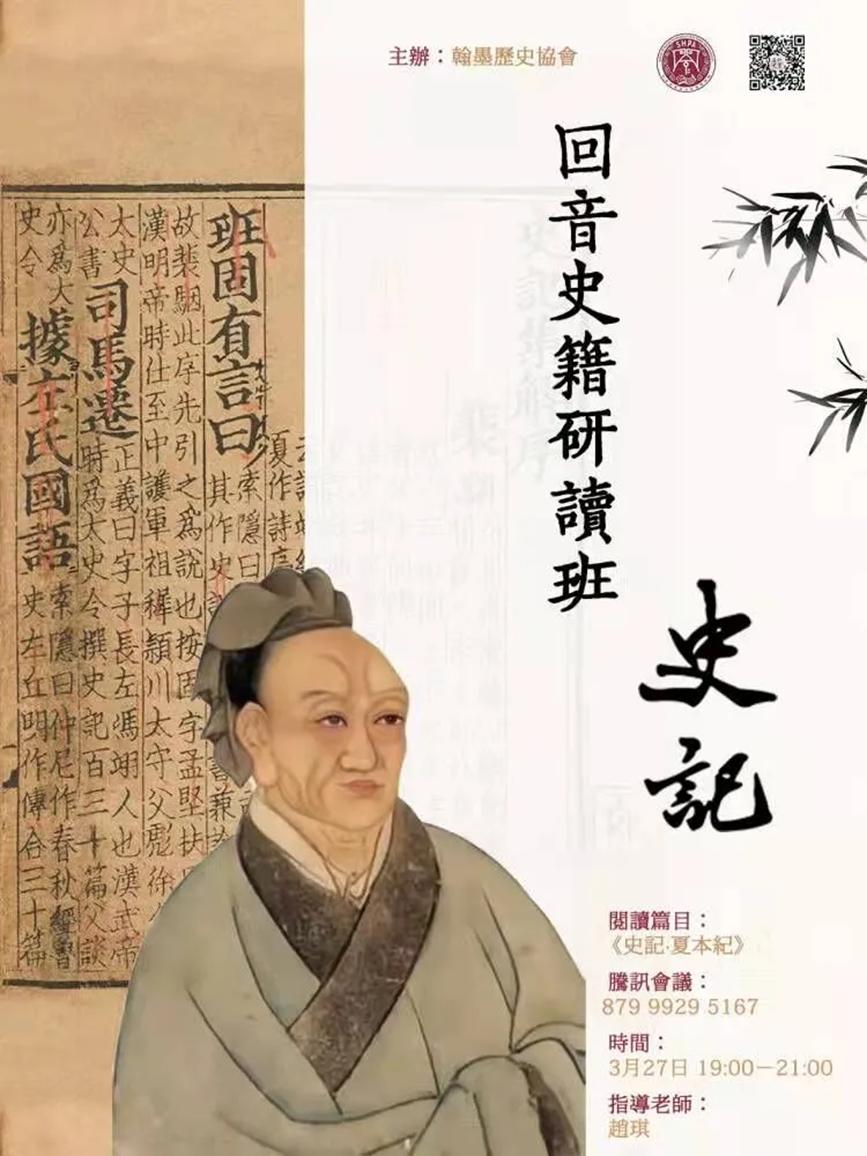 主辦：翰墨歷史協會
SHPA
回音史籍研讀班
史記
閱讀篇目：
《史記·夏本紀》
騰訊會議：
879 9929 5167
時間：
3月27日 19:00－21:00
指導老師：
趙琪
須作詩序
班固有言曰
索隱曰
其作史記
故裴駰此序先引之爲說也按固字孟堅扶
漢明帝時仕至中護軍祖穉潁川太守父彪徐
太史
公書
司馬遷
正義曰字子長左馮翊人也漢武帝
時爲太史令撰史記百三十篇父談
亦爲大
史令
據左氏國語
索隱曰仲尼作春秋經魯
史左丘明作傳合三十篇